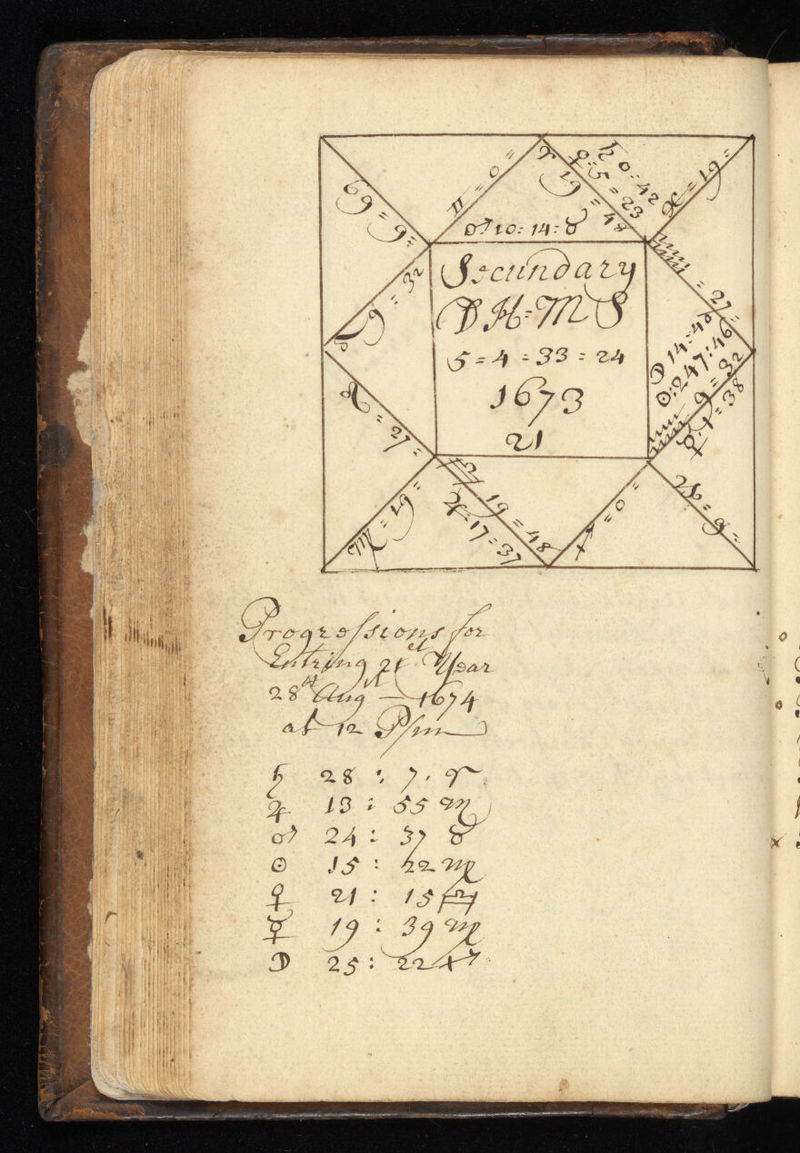 ♊ = 0 =
♈ 19 = 48
♀ : 5 = 23
♄ 0 : 42
♓ = 19 =
♋ 9 = 9 =
♂ 10 : 14 : ♉
Secundary
D H = M S
5 = 4 = 33 = 24
1673
21
9 = 32
♒ = 27 =
☽ 14 : 46
☉ : 247 : 46
♒ 9 = 32
☿ : 1 = 38
♌ = 27 =
♍ = 19 =
♎ 19 = 48
♃ = 17 = 37
♐ = 0 =
♑ = 9 =
Progressions for
Entring 21 Year
28 Aug — 1674
at 12 P m
♄ 28 : 7 . ♈
♃ 13 : 55 ♏
♂ 24 : 37 ♉
☉ 15 : 22 ♍
♀ 21 : 15 ♎
☿ 19 : 39 ♍
☽ 25 : 22 ♐